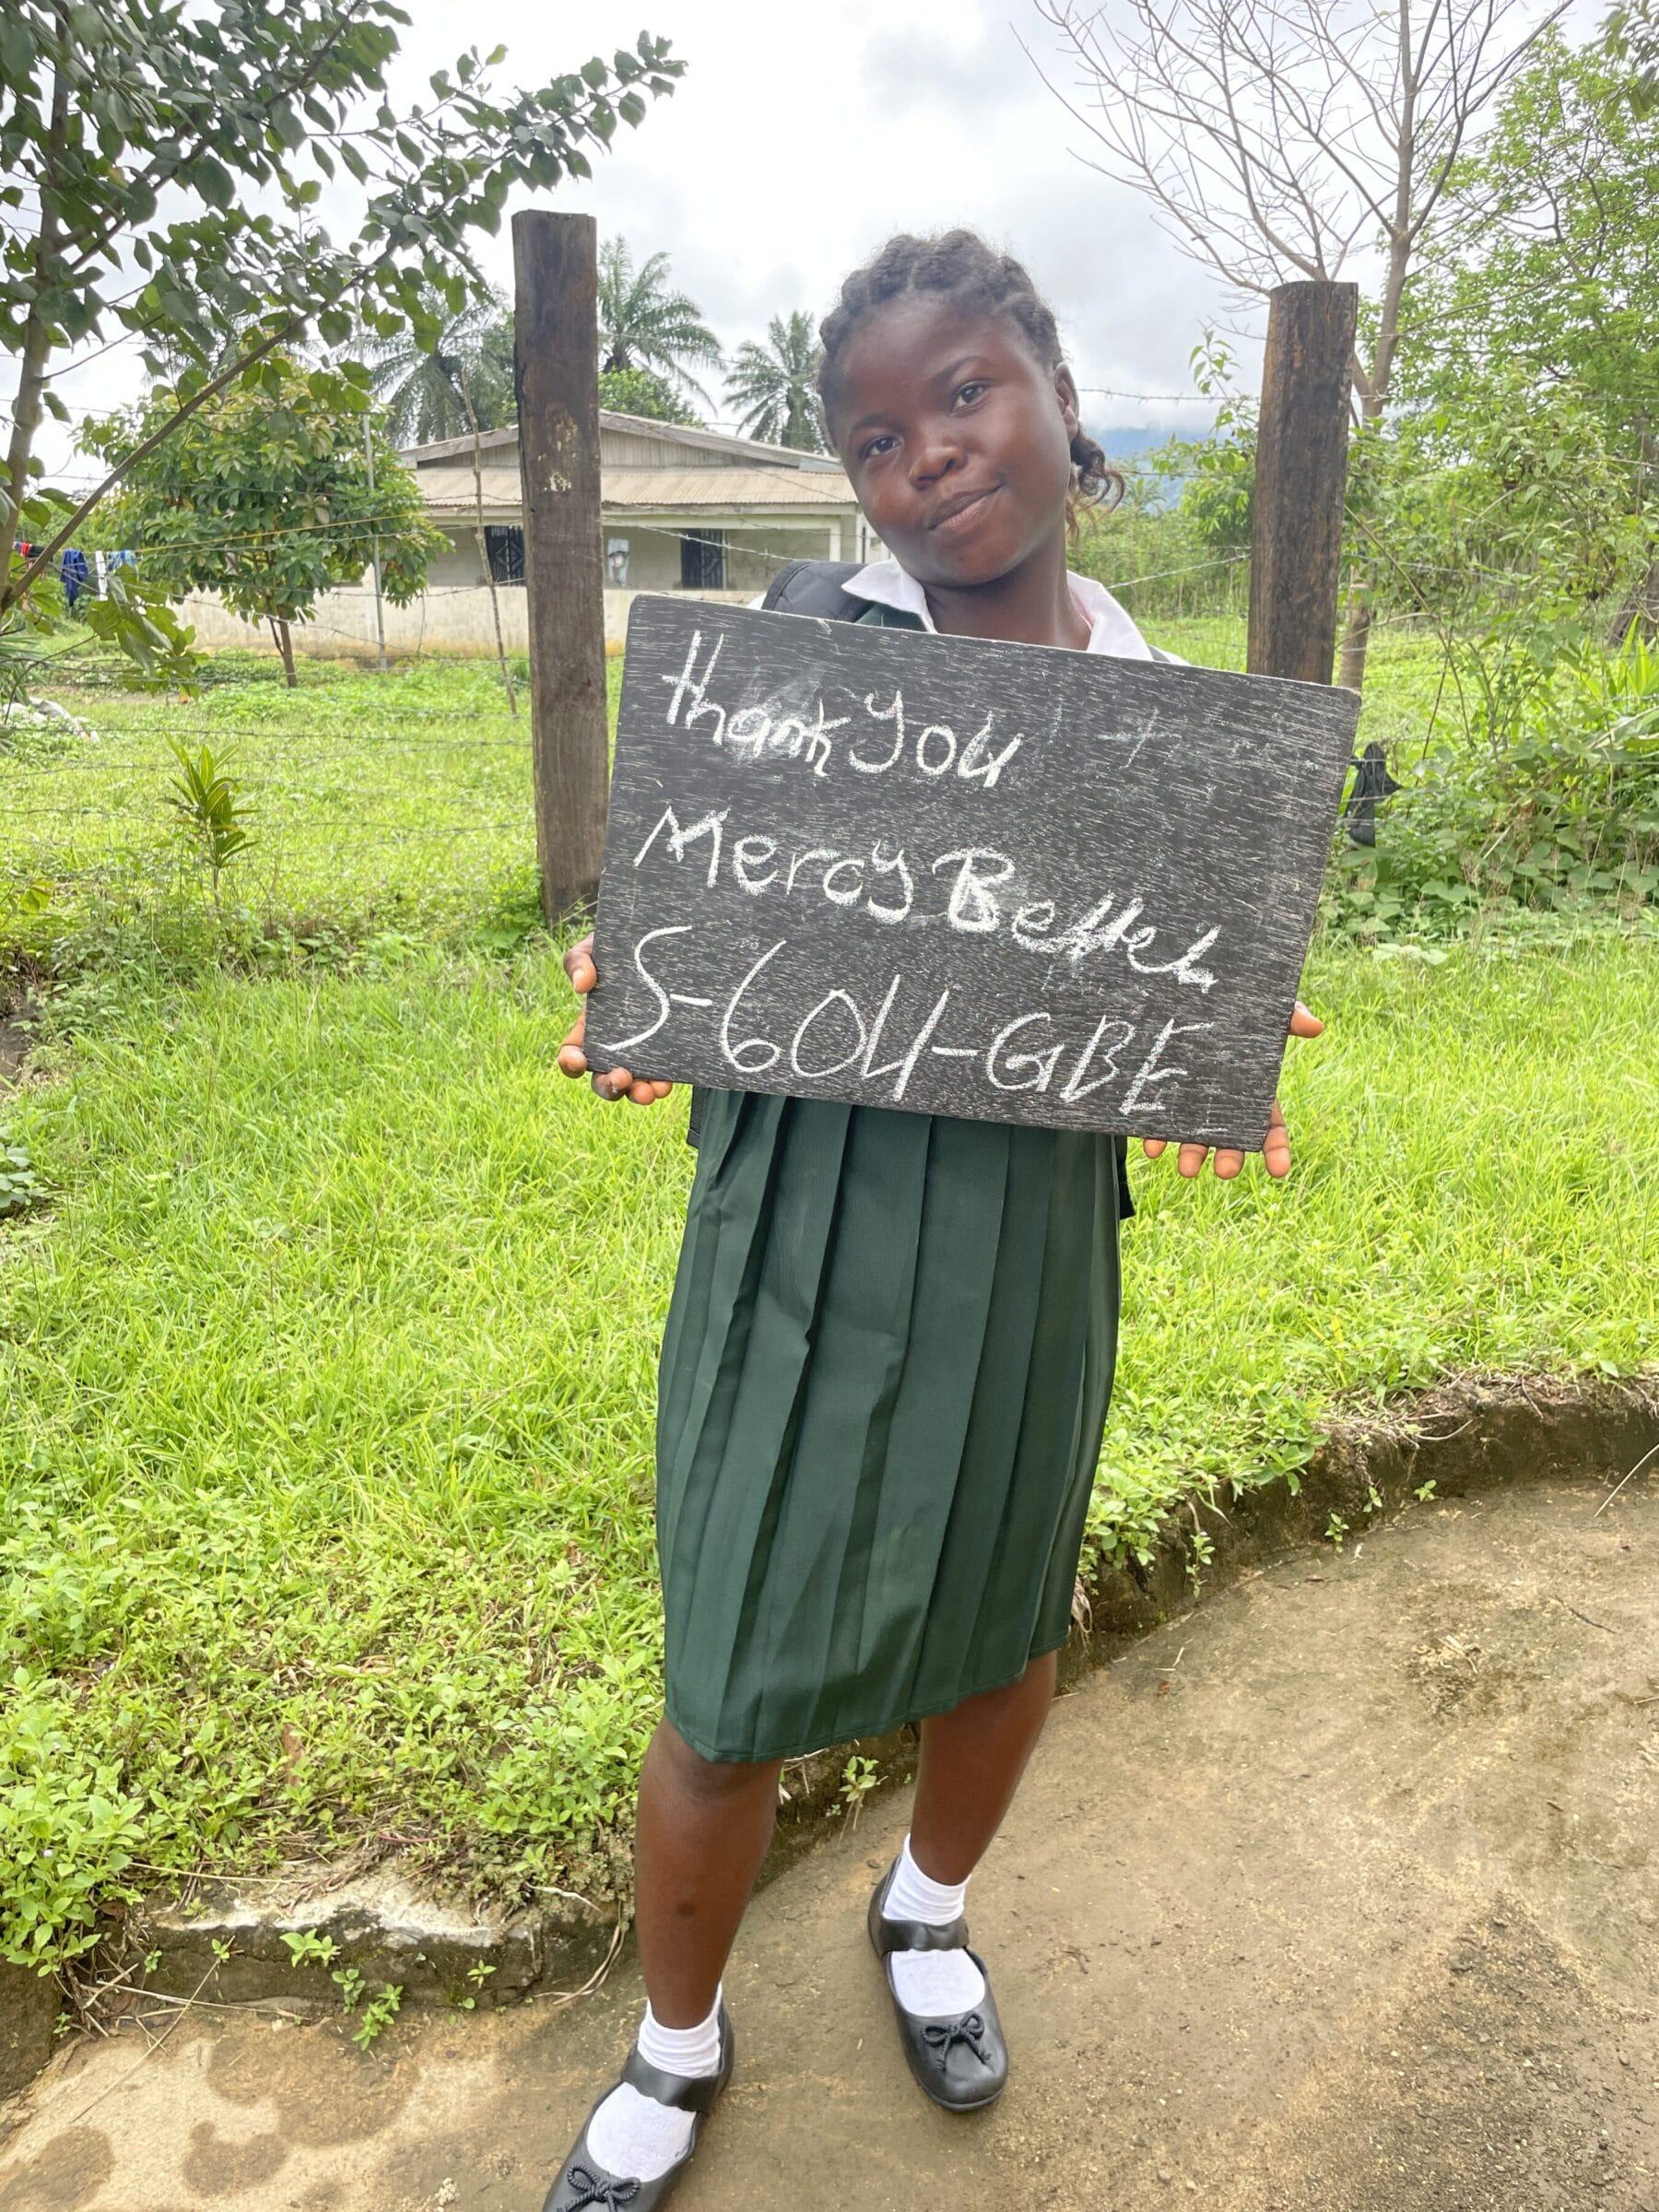 Thank You
Mercy
S-604-GBE